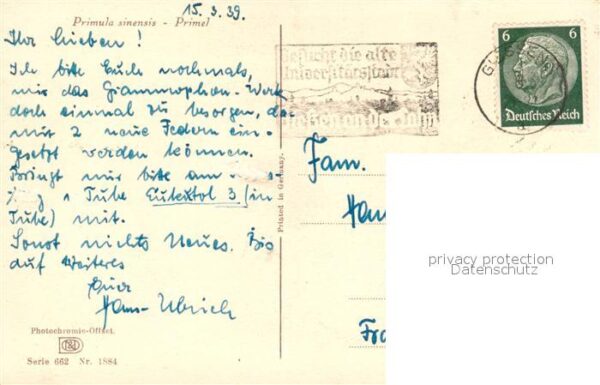 15. 3. 39.
Primula sinensis - Primel
Ihr Lieben!
Ich bitte Euch nochmals,
mir das Grammophon-Werk
doch einmal zu besorgen, da
mit 2 neue Federn ein-
gesetzt werden können.
Bringt mir bitte am
1 Tube (in
Tube) mit.
Sonst nichts Neues. Bis
auf Weiteres
Euer
Hans-Ulrich
Photochromie-Offset.
Serie 662 Nr. 1884
Printed in Germany.
Besucht die alte
Universitätsstadt
Gießen an der Lahn
6 6
Deutsches Reich
Fam.
privacy protection
Datenschutz